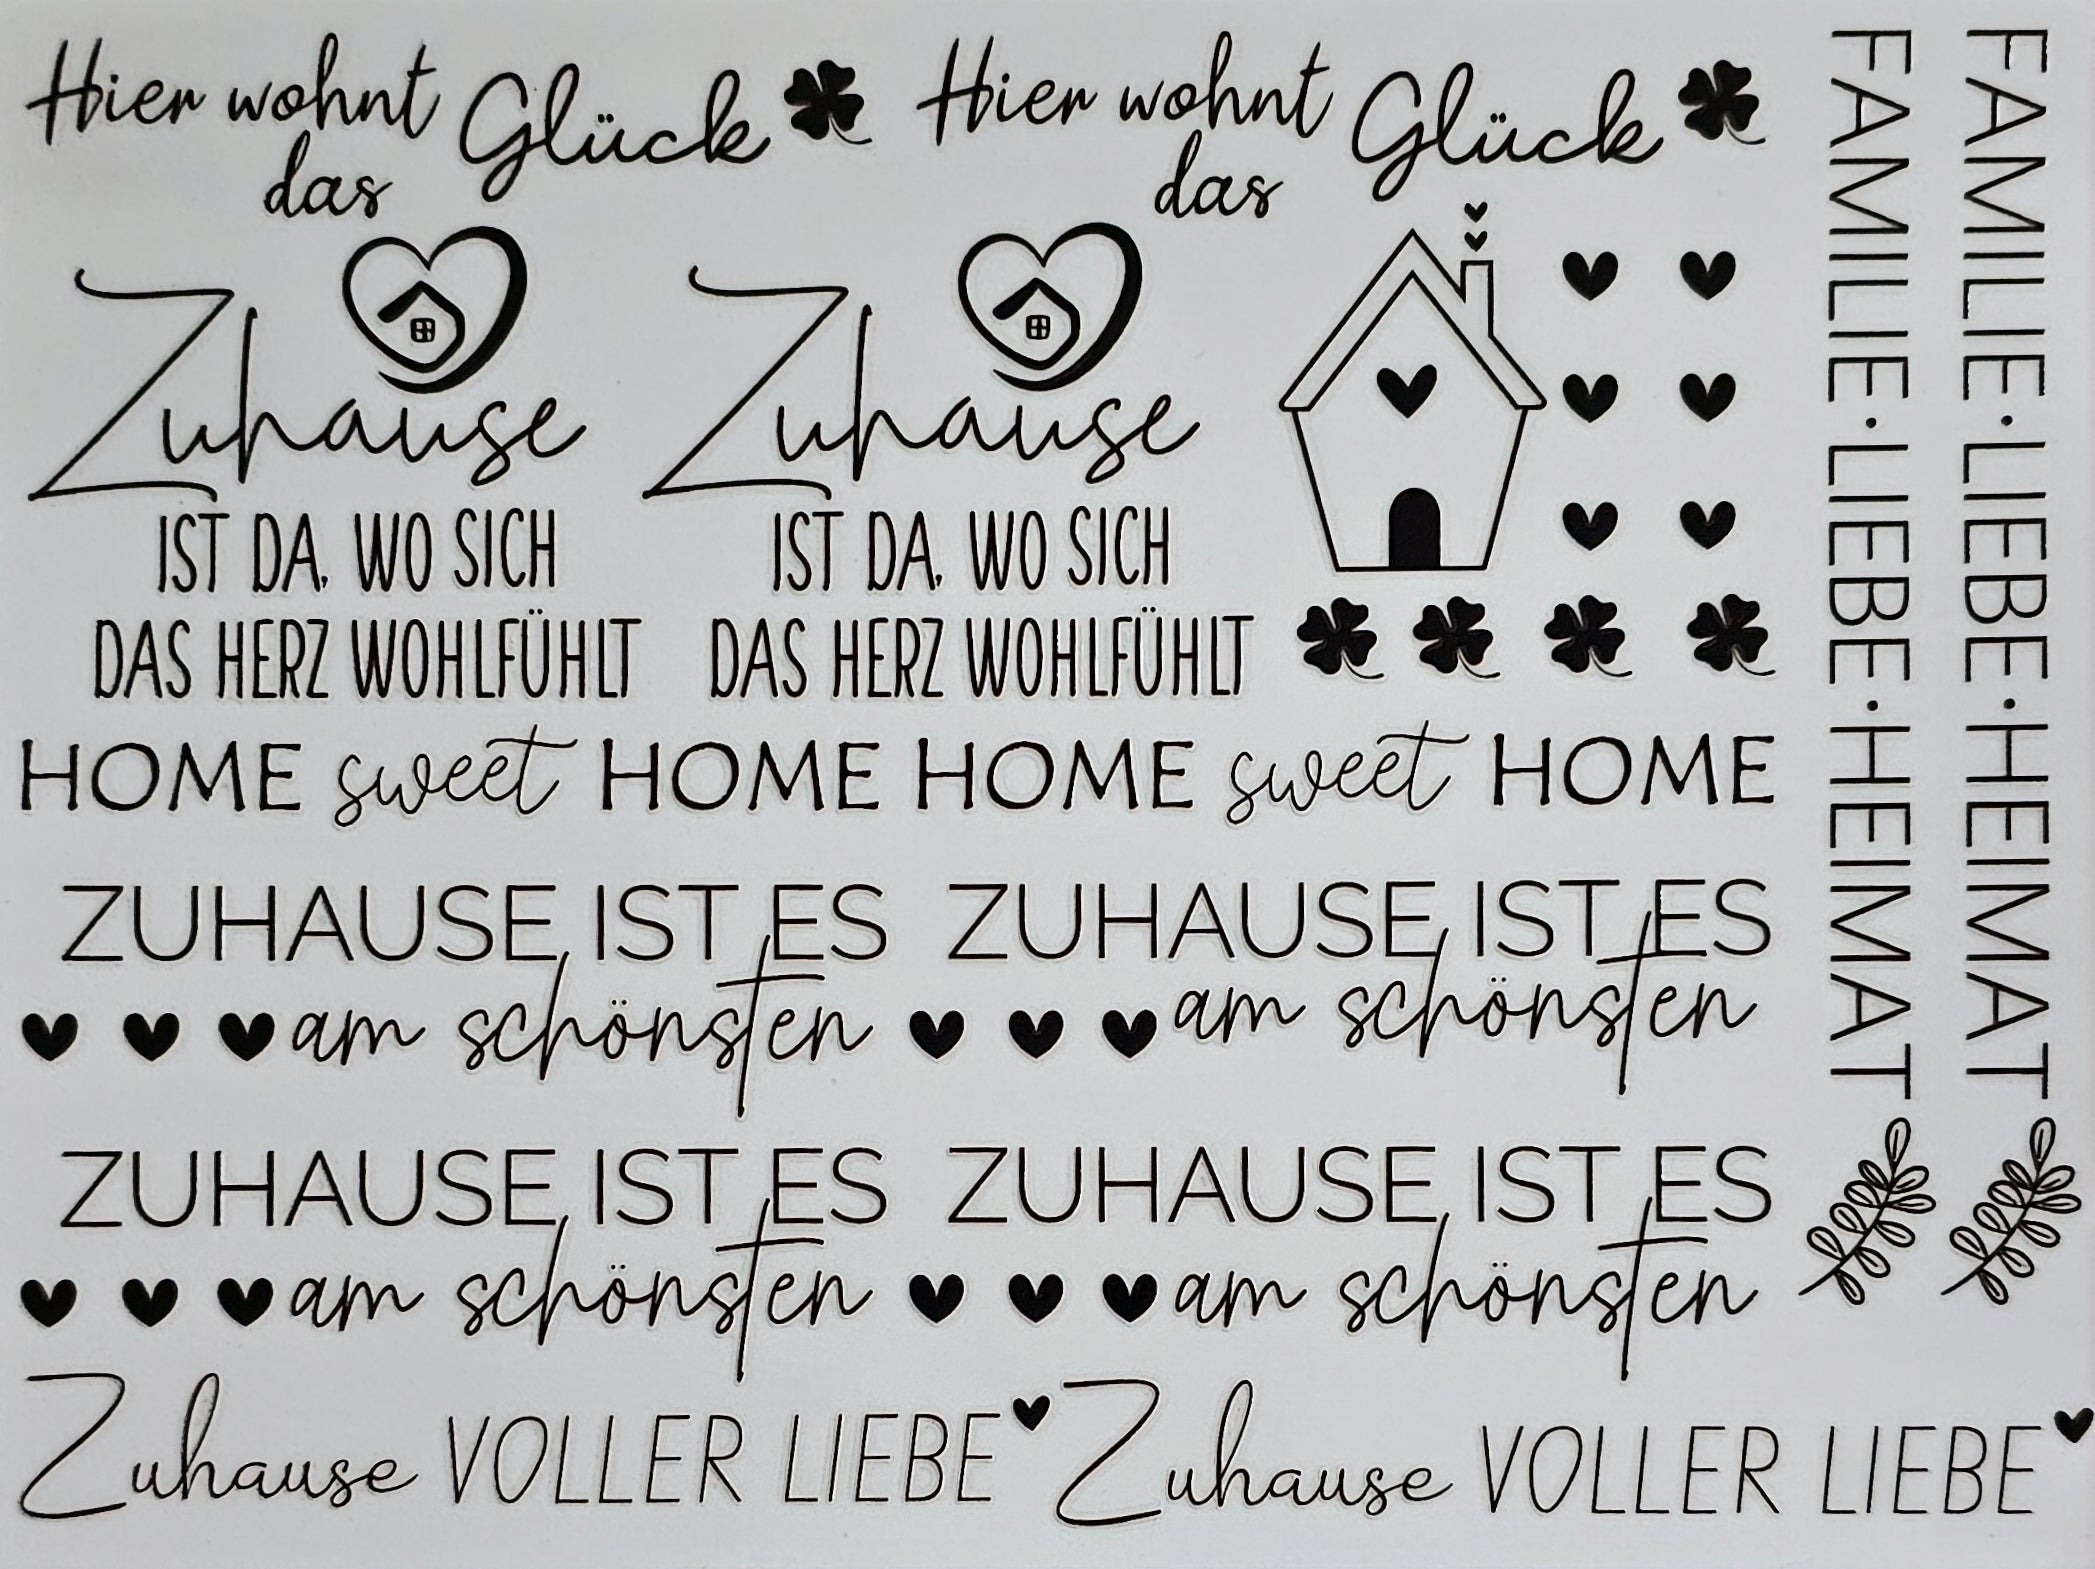 Hier wohnt das Glück
Hier wohnt das Glück
Zuhause
IST DA, WO SICH
DAS HERZ WOHLFÜHLT
Zuhause
IST DA, WO SICH
DAS HERZ WOHLFÜHLT
HOME sweet HOME
HOME sweet HOME
ZUHAUSE IST ES
am schönsten
ZUHAUSE IST ES
am schönsten
ZUHAUSE IST ES
am schönsten
ZUHAUSE IST ES
am schönsten
Zuhause VOLLER LIEBE
Zuhause VOLLER LIEBE
FAMILIE·LIEBE·HEIMAT
FAMILIE·LIEBE·HEIMAT